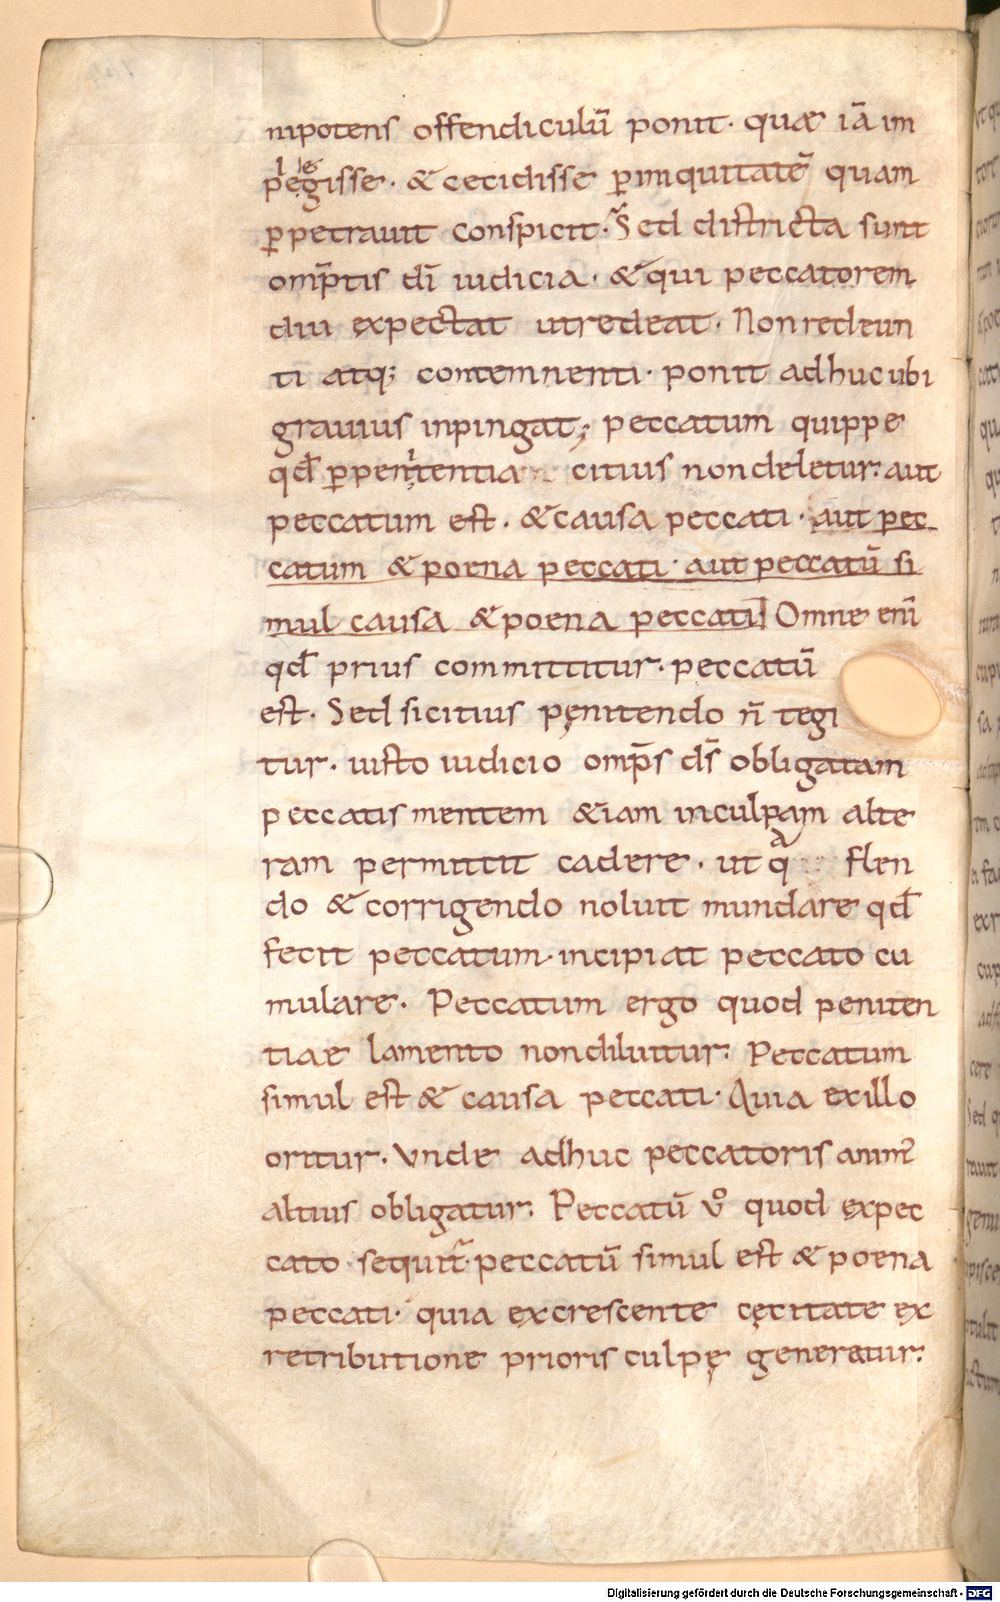 nipotens offendiculū ponit· quae iā im
pegisse· & cecidisse ꝑiniquitatē quam
ꝑpetrauit conspicit· Sed districta sunt
omp̄tis dī iudicia· & qui peccatorem
diu expectat utredeat· Nonredeun
ti atq; contemnenti· ponit adhucubi
grauius inpingat; peccatum quippe
qđ ꝑpenitentia citius nondeletur: aut
peccatum est· & causa peccati· aut pec
catum & poena peccati· aut peccatū si
mul causa & poena peccati Omne enī
qđ prius committitur· peccatū
est· Sed sicitius pęnitendo ñ tegi
tur· iusto iudicio omp̄s d̄s obligatam
peccatis mentem &iam inculpam alte
ram permittit cadere· ut q flen
do & corrigendo noluit mundare qđ
fecit peccatum· incipiat peccato cu
mulare· Peccatum ergo quod peniten
tiae lamento nondiluitur: Peccatum
simul est & causa peccati· Quia exillo
oritur· Unde adhuc peccatoris anim᾽
altius obligatur: Peccatū vͦ quod expec
cato sequit᷑· peccatū simul est & poena
peccati· quia excrescente cęcitate ex
retributione prioris culpę generatur:
Digitalisierung gefördert durch die Deutsche Forschungsgemeinschaft - DFG